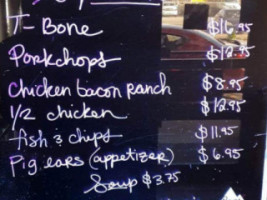 T-Bone $16.95
Porkchops $12.95
Chicken bacon ranch $8.95
1/2 chicken $12.95
fish & chips $11.95
Pig ears (appetizer) $6.95
Soup $3.75